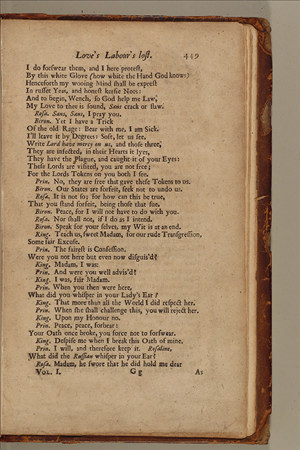 Love's Labour's lost. 449
I do forswear them, and I here protest,
By this white Glove (how white the Hand God knows)
Henceforth my wooing Mind shall be exprest
In russet Yeas, and honest kersie Noes:
And to begin, Wench, so God help me Law,
My Love to thee is sound, Sans crack or flaw.
Rosa. Sans, Sans, I pray you.
Biron. Yet I have a Trick
Of the old Rage: Bear with me, I am Sick.
I'll leave it by Degrees: Soft, let us see,
Write Lord have mercy on us, and those three,
They are infected, in their Hearts it lyes,
They have the Plague, and caught it of your Eyes:
These Lords are visited, you are not free;
For the Lords Tokens on you both I see.
Prin. No, they are free that gave these Tokens to us.
Biron. Our States are forfeit, seek not to undo us.
Rosa. It is not so; for how can this be true,
That you stand forfeit, being those that sue.
Biron. Peace, for I will not have to do with you.
Rosa. Nor shall not, if I do as I intend.
Biron. Speak for your selves, my Wit is at an end.
King. Teach us, sweet Madam, for our rude Transgression,
Some fair Excuse.
Prin. The fairest is Confession.
Were you not here but even now disguis'd?
King. Madam, I was.
Prin. And were you well advis'd?
King. I was, fair Madam.
Prin. When you then were here,
What did you whisper in your Lady's Ear?
King. That more than all the World I did respect her.
Prin. When she shall challenge this, you will reject her.
King. Upon my Honour no.
Prin. Peace, peace, forbear:
Your Oath once broke, you force not to forswear.
King. Despise me when I break this Oath of mine.
Prin. I will, and therefore keep it. Rosaline,
What did the Russian whisper in your Ear?
Rosa. Madam, he swore that he did hold me dear
VOL. I. G g As